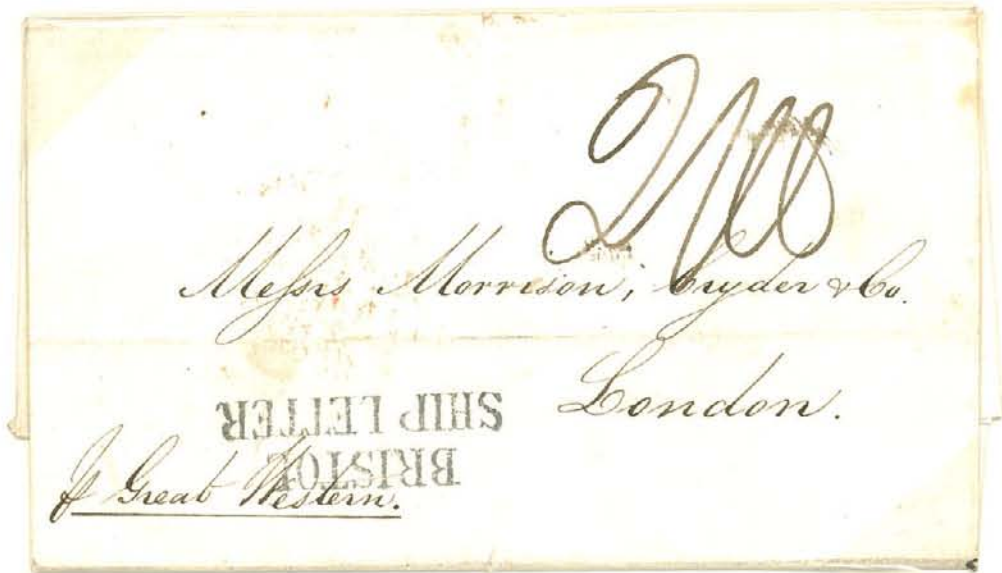 Messrs Morrison, Cryder & Co.
London.
BRISTOL
SHIP LETTER
p Great Western.